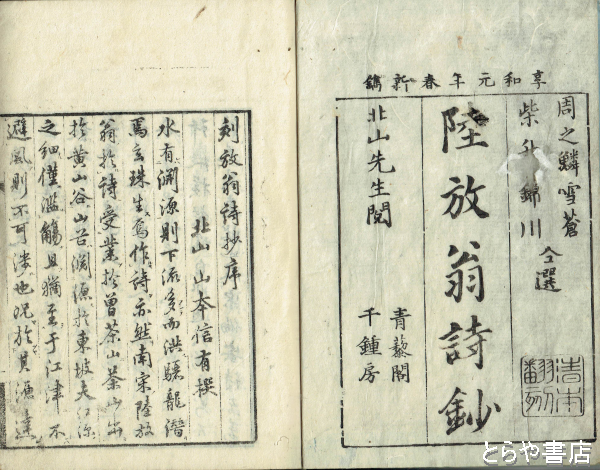 享和元年春新鐫
周之鱗雪蒼
柴升錦川
仝選
陸放翁詩鈔
北山先生閲
青藜閣
千鍾房
刻放翁詩抄序
北山山本信有撰
水有淵源則下流多而洪驪龍潛
焉玄珠生焉作詩亦然南宋陸放
翁於詩受業於曾茶山茶山出
於黄山谷山谷淵源於東坡夫江源
之細僅濫觴且猶至于江津不
避風則不可渉也况於其源
とらや書店